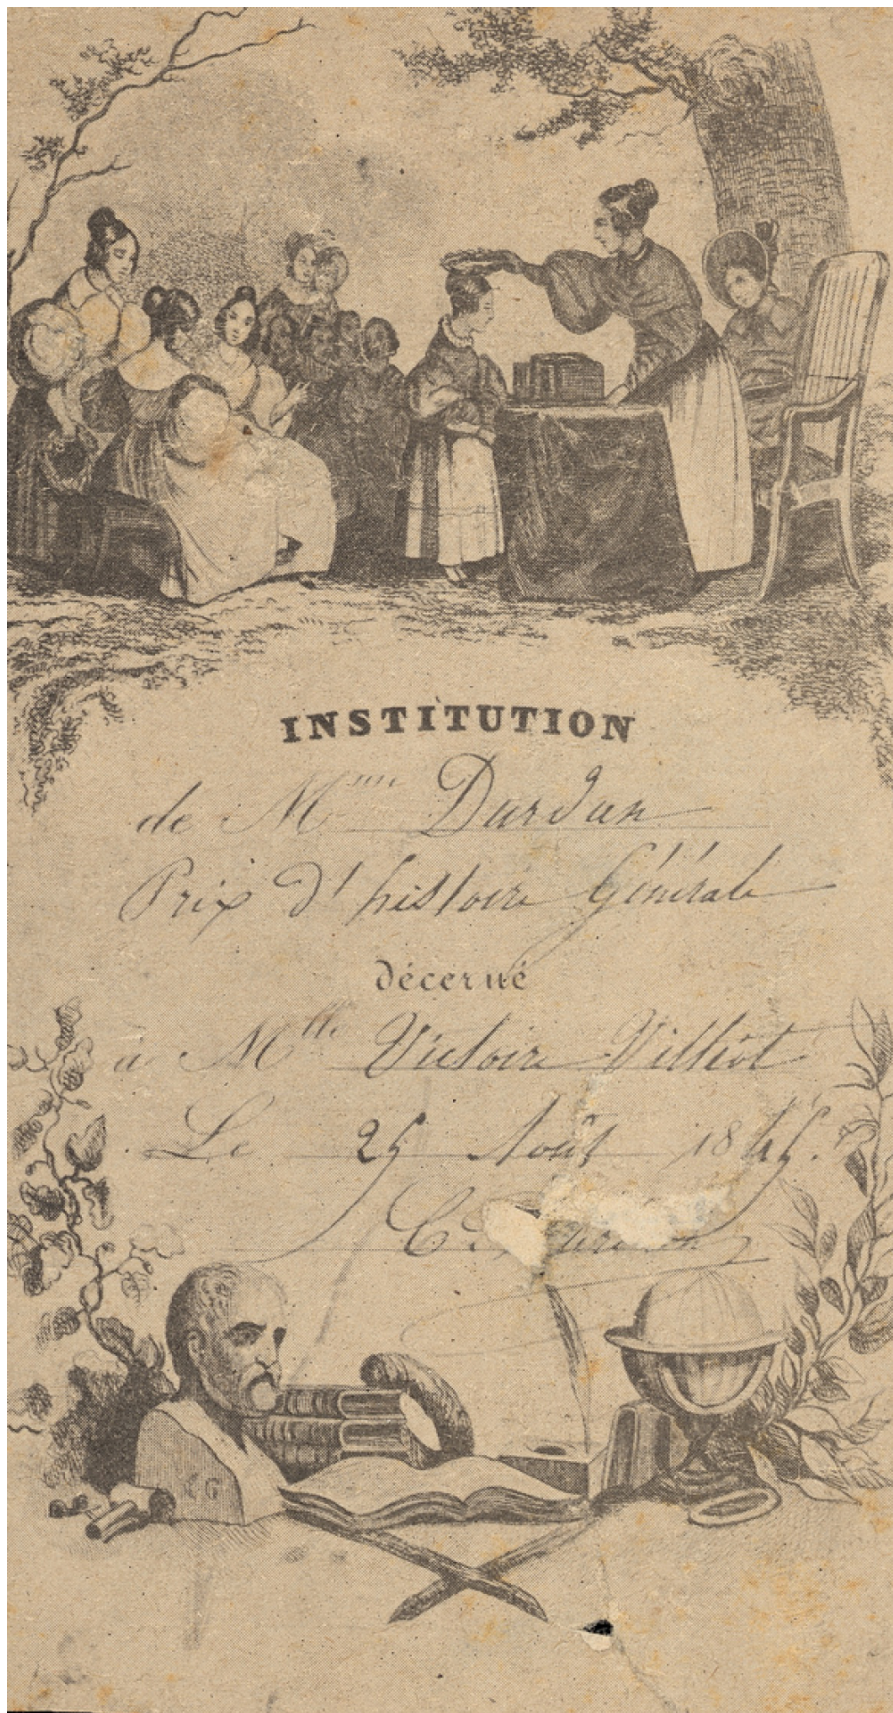 INSTITUTION
de Mme Durdan
Prix d'histoire Générale
décerné
à Mlle Victoire Villiot
Le 25 Août 1845.
C.